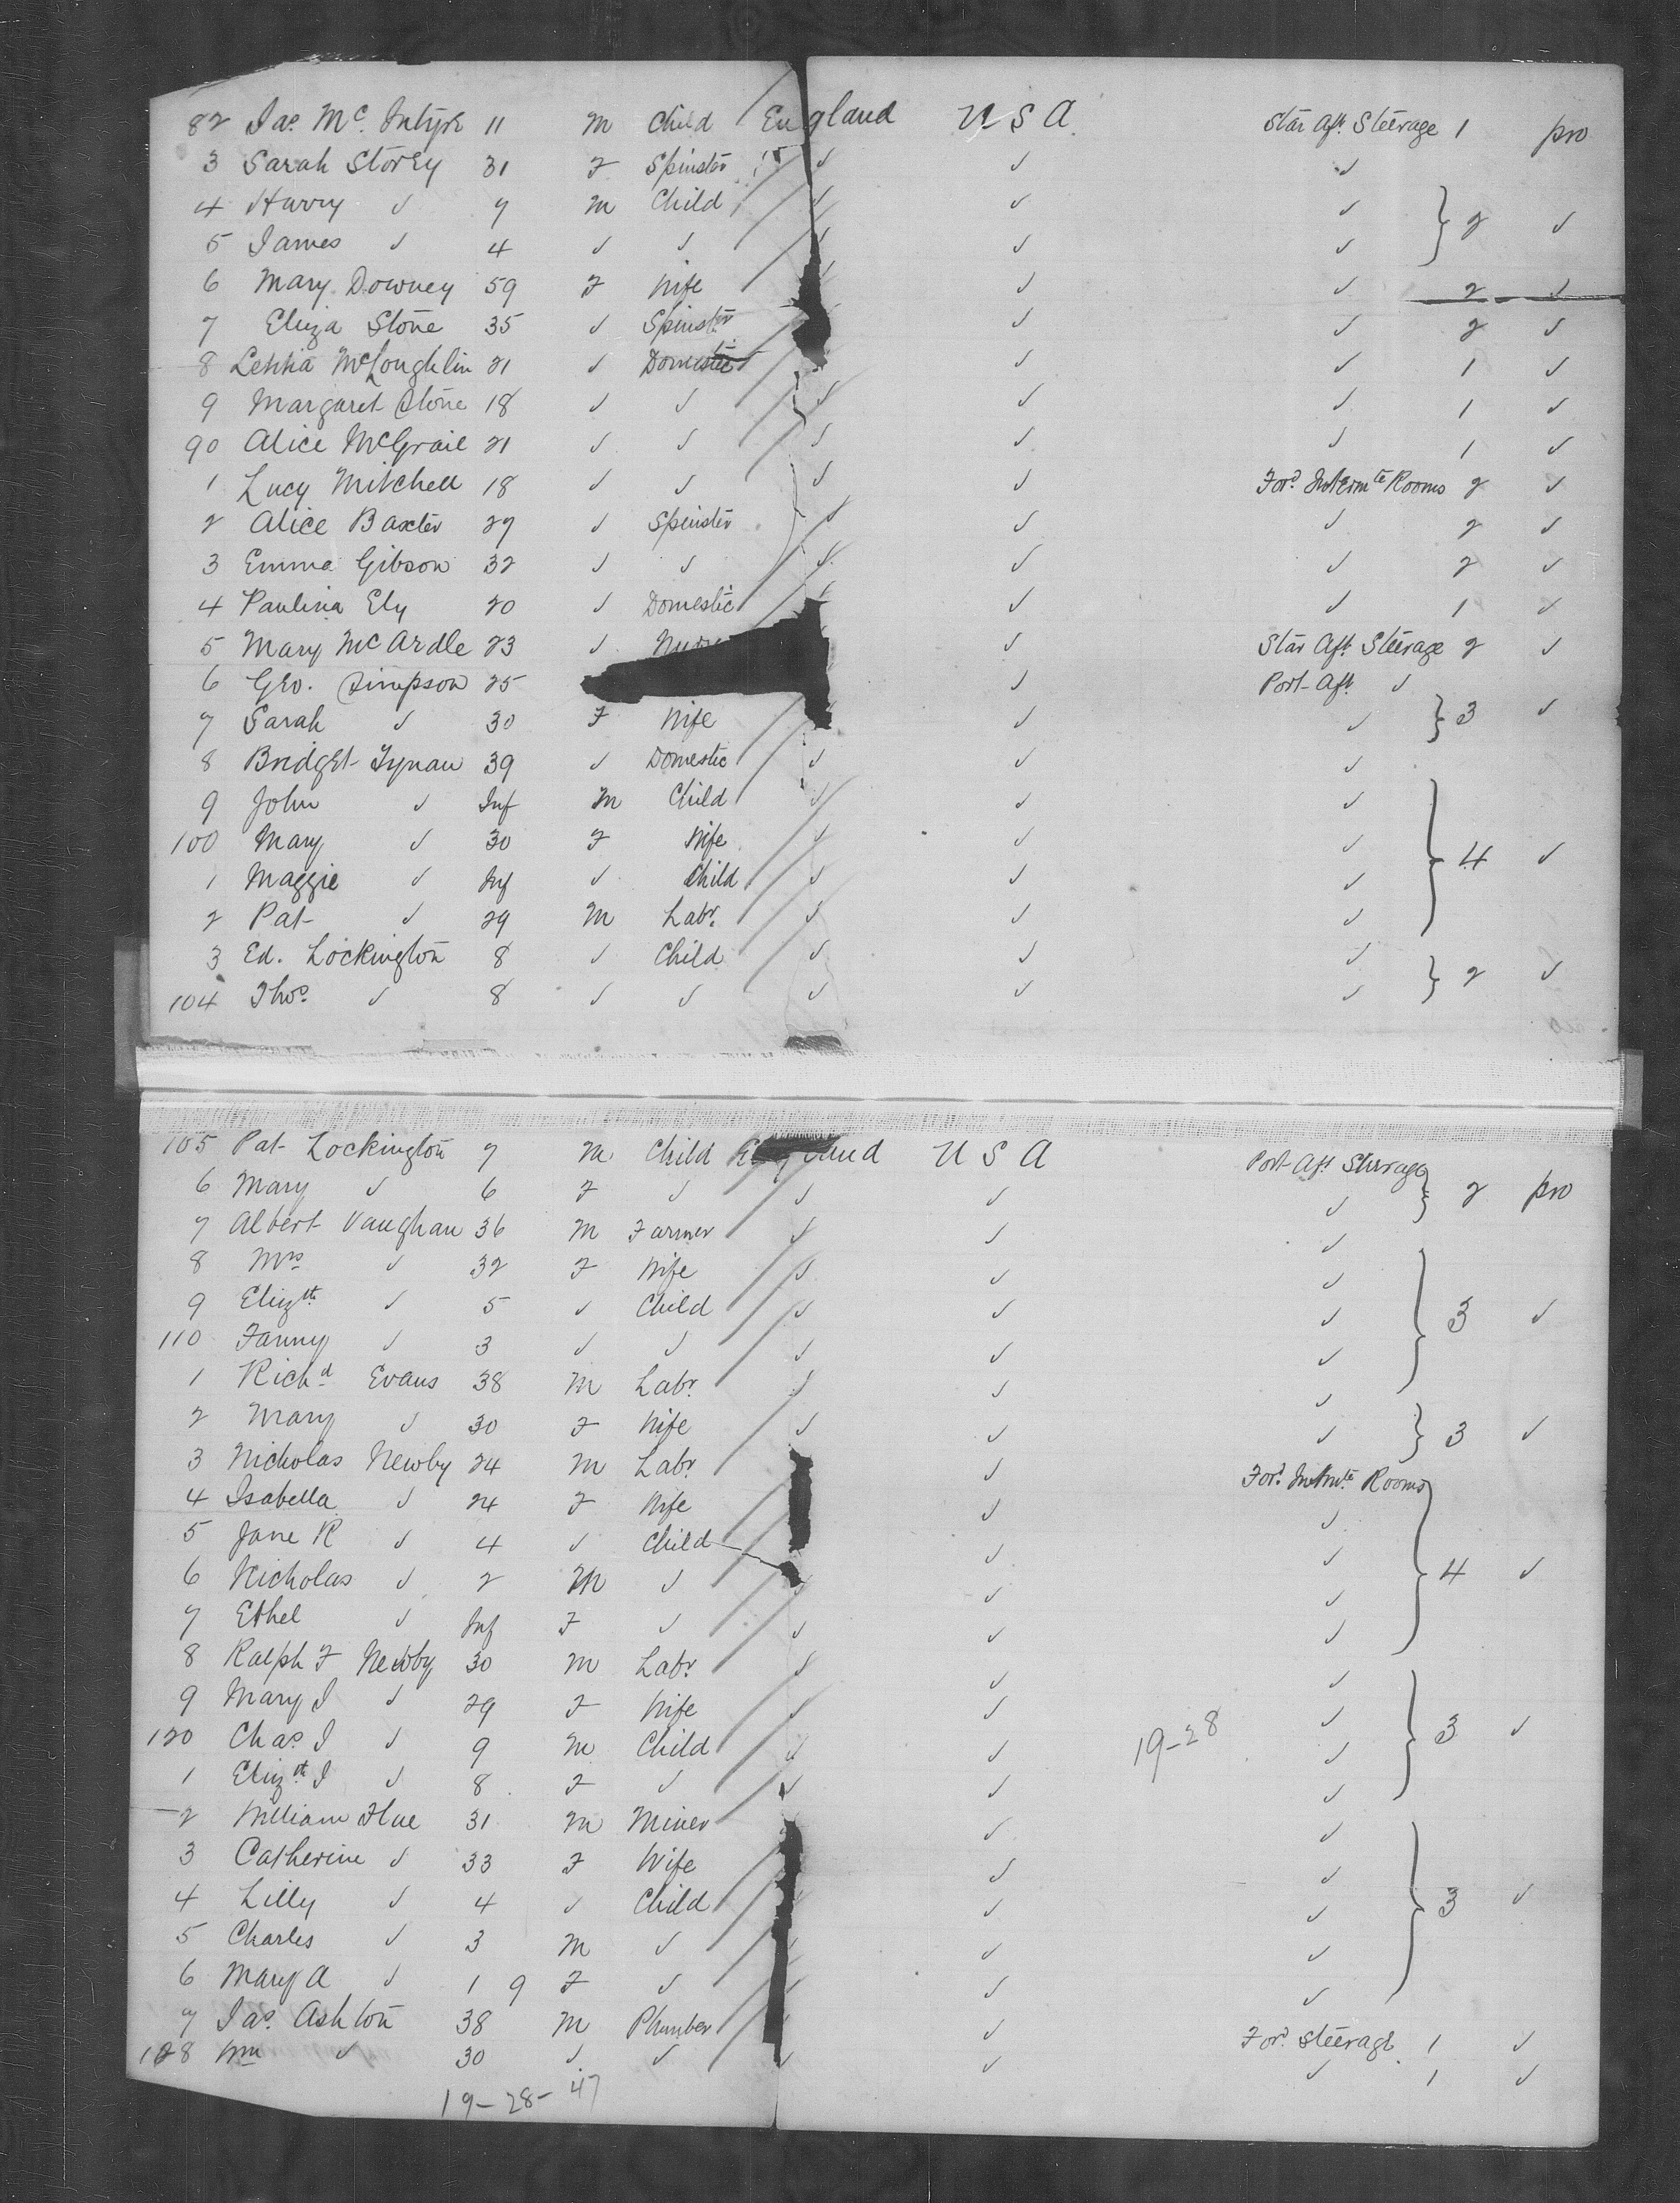 82 Jas. Mc. Intyre 11 M Child England U S A Star Aft. Steerage 1 pro
3 Sarah Storey 31 F Spinster ✓ ✓ ✓
4 Harry ✓ 7 M Child ✓ ✓ ✓ } 2 ✓
5 James ✓ 4 ✓ ✓ ✓ ✓ ✓
6 Mary Downey 59 F Wife ✓ ✓ 2 ✓
7 Eliza Stone 35 ✓ Spinster ✓ ✓ 2 ✓
8 Letitia McLoughlin 21 ✓ Domestic ✓ ✓ 1 ✓
9 Margaret Stone 18 ✓ ✓ ✓ ✓ ✓ 1 ✓
90 Alice McGrail 21 ✓ ✓ ✓ ✓ ✓ 1 ✓
1 Lucy Mitchell 18 ✓ ✓ ✓ ✓ Ford. Intermte Rooms 2 ✓
2 Alice Baxter 27 ✓ Spinster ✓ ✓ ✓ 2 ✓
3 Emma Gibson 32 ✓ ✓ ✓ ✓ ✓ 2 ✓
4 Paulina Ely 20 ✓ Domestic ✓ ✓ 1 ✓
5 Mary McArdle 23 ✓ ✓ Star Aft. Steerage 2 ✓
6 Geo. Simpson 25 ✓ Port Aft. ✓
7 Sarah ✓ 30 F Wife ✓ ✓ } 3 ✓
8 Bridget Tynan 39 ✓ Domestic ✓ ✓ ✓
9 John ✓ Inf M Child ✓ ✓ ✓
100 Mary ✓ 30 F Wife ✓ ✓ ✓ } 4 ✓
1 Maggie ✓ Inf ✓ Child ✓ ✓ ✓
2 Pat ✓ 29 M Labr. ✓ ✓ ✓
3 Ed. Lockington 8 ✓ Child ✓ ✓ ✓ } 2 ✓
104 Thos. ✓ 8 ✓ ✓ ✓ ✓ ✓
105 Pat Lockington 7 M Child England U S A Port Aft Steerage } 2 pro
6 Mary ✓ 6 F ✓ ✓ ✓ ✓
7 Albert Vaughan 36 M Farmer ✓ ✓ ✓
8 Mrs ✓ 32 F Wife ✓ ✓ ✓
9 Elizth ✓ 5 ✓ Child ✓ ✓ ✓ } 3 ✓
110 Fanny ✓ 3 ✓ ✓ ✓ ✓ ✓
1 Richd Evans 38 M Labr. ✓ ✓ ✓
2 Mary ✓ 30 F Wife ✓ ✓ ✓ } 3 ✓
3 Nicholas Newby 24 M Labr. ✓ Ford. Intmte. Rooms
4 Isabella ✓ 24 F Wife ✓ ✓
5 Jane R ✓ 4 ✓ Child ✓ ✓ } 4 ✓
6 Nicholas ✓ 2 M ✓ ✓ ✓ ✓
7 Ethel ✓ Inf F ✓ ✓ ✓ ✓
8 Ralph F Newby 30 M Labr. ✓ ✓ ✓
9 Mary I ✓ 29 F Wife ✓ ✓ ✓
120 Chas I ✓ 9 M Child ✓ ✓ 19-28 ✓ } 3 ✓
1 Elizth I ✓ 8 F ✓ ✓ ✓ ✓
2 William Flue 31 M Miner ✓ ✓
3 Catherine ✓ 33 F Wife ✓ ✓
4 Lilly ✓ 4 ✓ Child ✓ ✓ } 3 ✓
5 Charles ✓ 3 M ✓ ✓ ✓
6 Mary A ✓ 1 9 F ✓ ✓ ✓
7 Jas. Ashton 38 M Plumber ✓ Ford. Steerage 1 ✓
128 Wm ✓ 30 ✓ ✓ ✓ ✓ ✓ 1 ✓
19-28-47